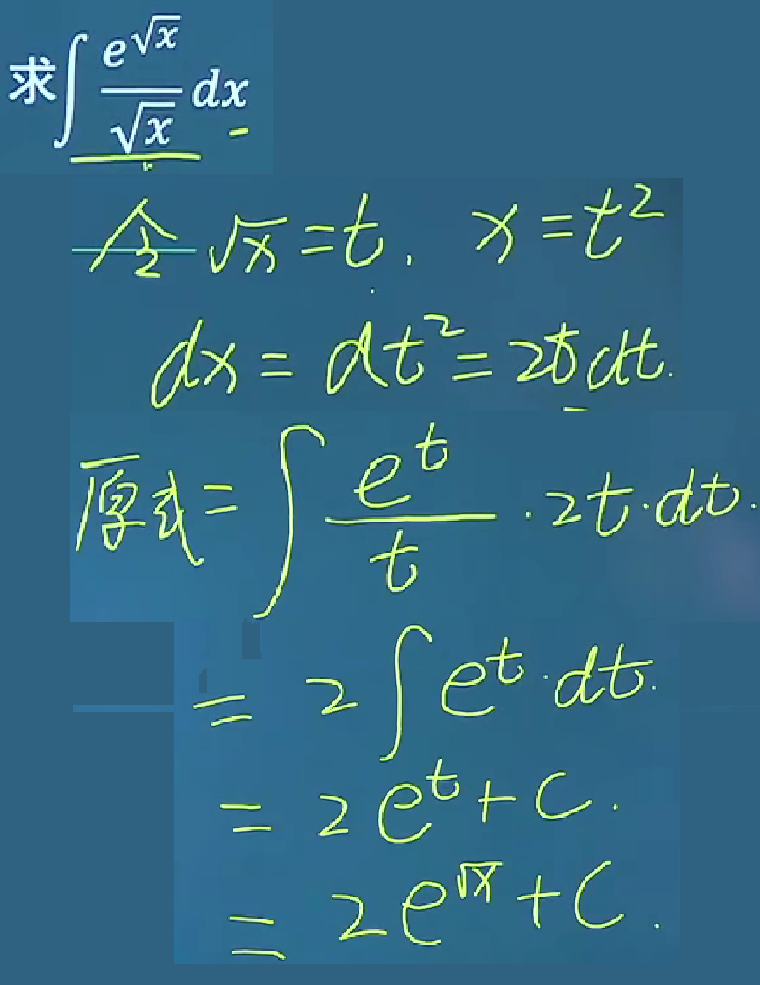 求∫ e^√x / √x dx
令 √x = t, x = t²
dx = dt² = 2t dt.
原式 = ∫ e^t / t · 2t · dt.
= 2 ∫ e^t · dt.
= 2e^t + C.
= 2e^√x + C.